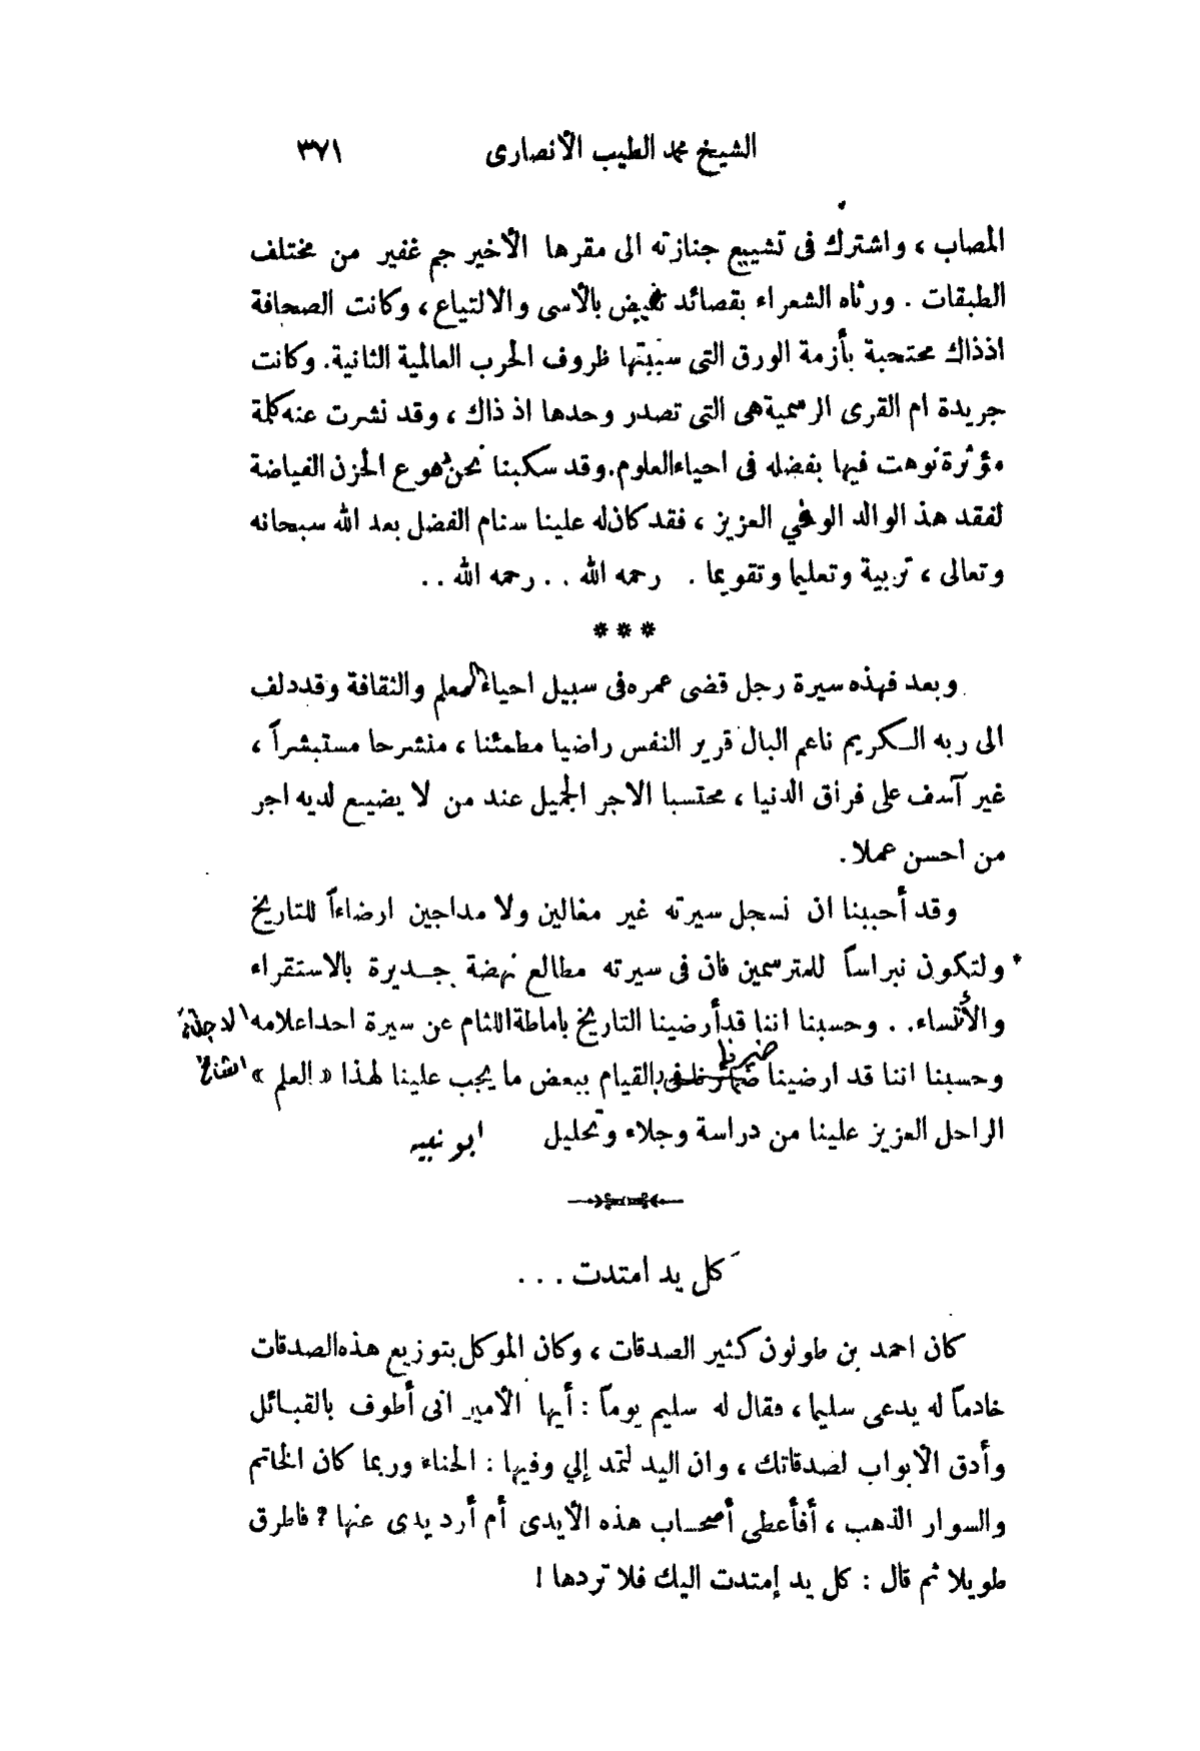 الشيخ محمد الطيب الأنصارى ٣٧١
المصاب ، واشترك فى تشييع جنازته الى مقرها الأخير جم غفير من مختلف
الطبقات . ورثاه الشعراء بقصائد تفيض بالأسى والالتياع ، وكانت الصحافة
اذذاك محتجبة بأزمة الورق التى سببتها ظروف الحرب العالمية الثانية. وكانت
جريدة ام القرى الرسمية هى التى تصدر وحدها اذ ذاك ، وقد نشرت عنه كلمة
مؤثرة نوهت فيها بفضله فى احياء العلوم. وقد سكبنا نحن دموع الحزن الفياضة
لفقد هذ الوالد الوفي العزيز ، فقد كان له علينا سنام الفضل بعد الله سبحانه
وتعالى ، تربية وتعليما وتقويما . رحمه الله . . رحمه الله . .
***
وبعد فهذه سيرة رجل قضى عمره فى سبيل احياء العلم والثقافة وقد دلف
الى ربه الكريم ناعم البال قرير النفس راضيا مطمئنا ، منشرحا مستبشراً ،
غير آسف على فراق الدنيا ، محتسبا الاجر الجميل عند من لا يضيع لديه اجر
من احسن عملا .
وقد أحببنا ان نسجل سيرته غير مغالين ولا مداجين ارضاءاً للتاريخ
ولتكون نبراساً للمترسمين فان فى سيرته مطالع نهضة جديرة بالاستقراء
والأئتساء. . وحسبنا اننا قد أرضينا التاريخ باماطة اللثام عن سيرة احد اعلامه الاجلة
وحسبنا اننا قد ارضينا ضميرنا بالقيام ببعض ما يجب علينا لهذا « العلم » الشامخ
الراحل العزيز علينا من دراسة وجلاء وتحليل ابو نبيه
كل يد امتدت . . .
كان احمد بن طولون كثير الصدقات ، وكان الموكل بتوزيع هذه الصدقات
خادماً له يدعى سليما ، فقال له سليم يوماً : أيها الأمير انى أطوف بالقبائل
وأدق الأبواب لصدقاتك ، وان اليد لتمد إلي وفيها : الحناء وربما كان الخاتم
والسوار الذهب ، أفأعطى أصحاب هذه الأيدى أم أرد يدى عنها ? فاطرق
طويلا ثم قال : كل يد إمتدت اليك فلا تردها !